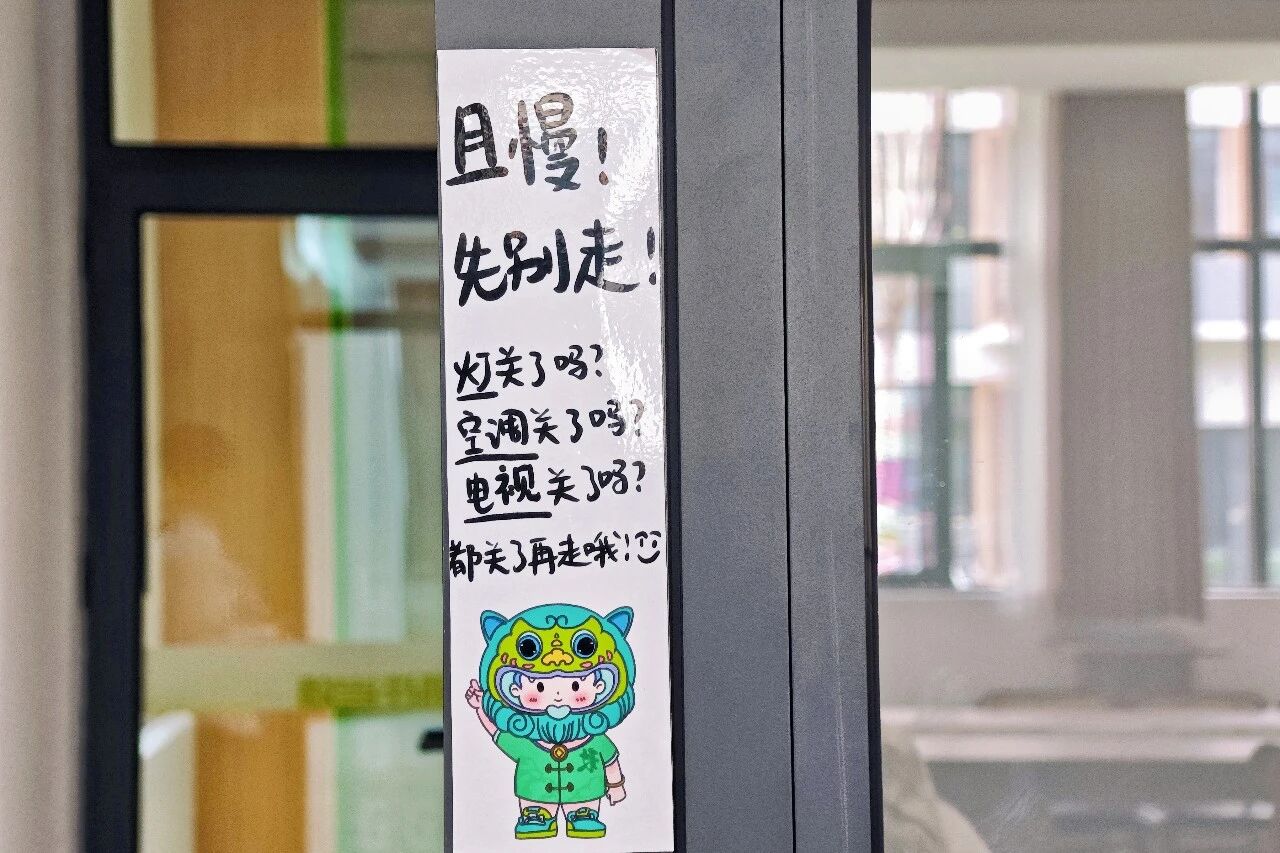 且慢！
先别走！
灯关了吗？
空调关了吗？
电视关了吗？
都关了再走哦！